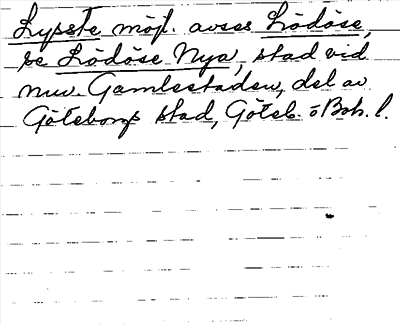 Lypste möjl. avses Lödöse,
se Lödöse Nya, stad vid
nuv. Gamlestaden, del av
Göteborgs stad, Göteb. o Boh. l.